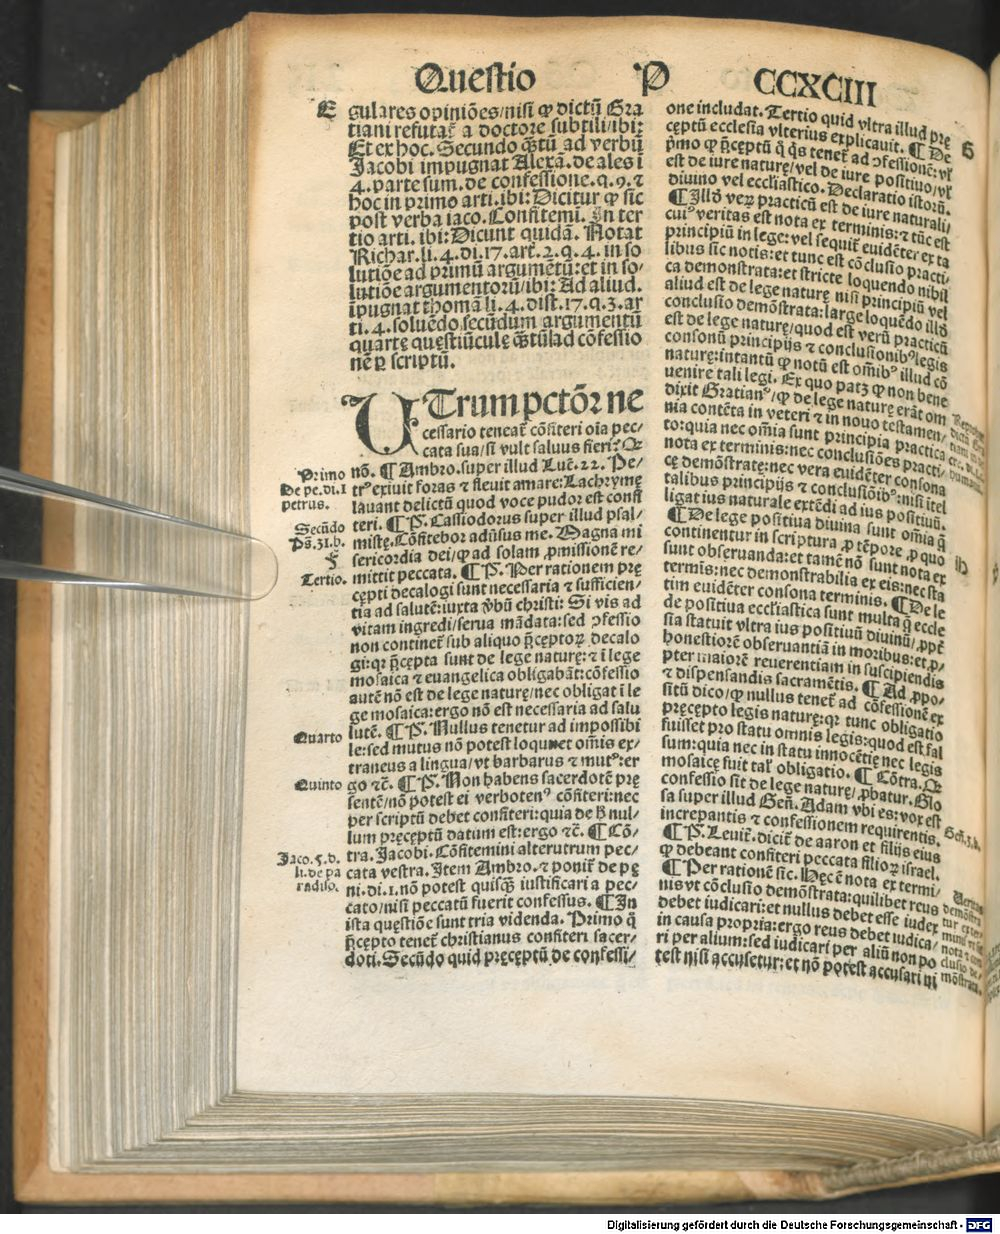 Questio P CCXCIII
E
gulares opiniões/nisi ꝙ dictũ Gra
tiani refutat̃ a doctore subtili/ibi:
Et ex hoc. Secundo q̃tũ ad verbũ
Jacobi impugnat Alexã. de ales i
4. parte sum. de confessione. q. 9. ⁊
hoc in primo arti. ibi: Dicitur ꝙ sic
post verba iaco. Confitemi. In ter
tio arti. ibi: Dicunt quidã. Notat
Richar. li. 4. di. 17. art. 2. q. 4. in so
lutiõe ad primũ argumẽtũ: et in so/
lutiõe argumentorũ/ibi: Ad aliud.
ipugnat thomã li. 4. dist. 17. q. 3. ar
ti. 4. soluẽdo secũdum argumentũ
quartę quęstiũculę q̃tũ ad cõfessio
nẽ ꝑ scriptũ.
UTrum pctõꝛ ne
cessario teneat̃ cõfiteri oĩa pec/
cata sua/si vult saluus fieri? Qꝛ
nõ. ¶ Ambro. super illud Luẽ. 22. Pe/
trꝰ exiuit foras ⁊ fleuit amare: Lachrymę
lauant delictũ quod voce pudor est confi
teri. ¶ P. Cassiodorus super illud psal/
mistę. Cõfitebor aduersus me. Magna mi
sericordia dei/ꝙ ad solam ꝓmissionẽ re/
mittit peccata. ¶ P. Per rationem prę
cępti decalogi sunt necessaria ⁊ sufficien/
tia ad salutẽ: iuxta v̓bũ christi: Si vis ad
vitam ingredi/serua mãdata: sed ↄfessio
non continet̃ sub aliquo p̃ceptoꝝ decalo
gi: qꝛ p̃cepta sunt de lege naturę: ⁊ i lege
mosaica ⁊ euangelica obligabãt: cõfessio
autẽ nõ est de lege naturę/nec obligat i le
ge mosaica: ergo nõ est necessaria ad salu
lutẽ. ¶ P. Nullus tenetur ad impossibi
le: sed mutus nõ potest loqui: nec om̃is ex/
traneus a lingua/vt barbarus ⁊ mutꝰ: er
go ⁊c̃. ¶ P. Non habens sacerdotẽ prę
sentẽ/nõ potest ei verbotenꝰ cõfiteri: nec
per scriptũ debet confiteri: quia de h̓ nul/
lum pręceptũ datum est: ergo ⁊c̃. ¶ Cõ/
tra. Jacobi. Cõfitemini alterutrum pec/
cata vestra. Item Ambro. ⁊ ponit̃ de pę
ni. di. 1. nõ potest quisq̃ iustificari a pec/
cato/nisi peccatũ fuerit confessus. ¶ In
ista quęstiõe sunt tria videnda. Primo q̃
p̃cepto tenet̃ christianus confiteri sacer/
doti. Secũdo quid pręceptũ de confessi/
Primo
De pe. di. 1
petrus.
Secũdo
Ps̃. 31. b.
F
Tertio.
Quarto
Quinto
Jaco. 5. d.
li. de pa
radiso.
one includat. Tertio quid vltra illud prę
cęptũ ecclesia vlterius explicauit. ¶ De
p̃mo ꝙ p̃ceptũ q̃ q̃s tenet̃ ad ↄfessionẽ: vl̃
est de iure naturę/vel de iure positiuo/vl̃
diuino vel eccl̃iastico. Declaratio istorũ.
¶ Illð veꝝ practicũ est de iure naturali/
cuiꝰ veritas est nota ex terminis: ⁊ tũc est
principiũ in lege: vel sequit̃ euidẽter ex ta
libus sic notis: et tunc est cõclusio practi/
ca demonstrata: et stricte loquendo nihil
aliud est de lege naturę nisi principiũ vel
conclusio demõstrata: large loquẽdo illð
est de lege naturę/quod est verũ practicũ
consonũ principijs ⁊ conclusionibꝰ legis
naturę: intantũ ꝙ notũ est om̃ibꝰ illud cõ
uenire tali legi. Ex quo patꝫ ꝙ non bene
dixit Gratianꝰ/ꝙ de lege naturę erãt om
nia contẽta in veteri ⁊ in nouo testamen/
to: quia nec om̃ia sunt principia practica
nota ex terminis: nec conclusiões practi/
cę demõstratę: nec vera euidẽter consona
talibus principijs ⁊ conclusiõibꝰ: nisi itel
ligat ius naturale extẽdi ad ius positiuũ.
¶ De lege positiua diuina sunt om̃ia q̃
continentur in scriptura ꝓ tẽpore ꝓ quo
sunt obseruanda: et tamẽ nõ sunt nota ex
termis: nec demonstrabilia ex eis: nec sta
tim euidẽter consona terminis. ¶ De le
ge positiua eccl̃iastica sunt multa q̃ eccle
sia statuit vltra ius positiuũ diuinũ/ꝓpt̃
honestiorẽ obseruantiã in moribus: et ꝓ/
pter maiorẽ reuerentiam in suscipiendis
⁊ dispensandis sacramẽtis. ¶ Ad ꝓpo/
sitũ dico/ꝙ nullus tenet̃ ad cõfessionẽ ex
pręcepto legis naturę: qꝛ tunc obligatio
fuisset pro statu omnis legis: quod est fal
sum: quia nec in statu innocẽtię nec legis
mosaicę fuit tal̓ obligatio. ¶ Cõtra. Qꝛ
confessio sit de lege naturę/ꝓbatur. Glo
sa super illud Geñ. Adam vbi es: vox est
increpantis ⁊ confessionem requirentis.
¶ P. Leuit̃. dicit̃ de aaron et filijs eius
ꝙ debeant confiteri peccata filioꝝ israel.
¶ Per rationẽ sic. Hęc ẽ nota ex termi/
nis vt cõclusio demõstrata: quilibet reus
debet iudicari: et nullus debet esse iudex
in causa propria: ergo reus debet iudica/
ri per alium: sed iudicari per aliũ non po
test nisi accusetur: et nõ potest accusari ni
G
H
Gen̄. 3. b.
Digitalisierung gefördert durch die Deutsche Forschungsgemeinschaft - DFG